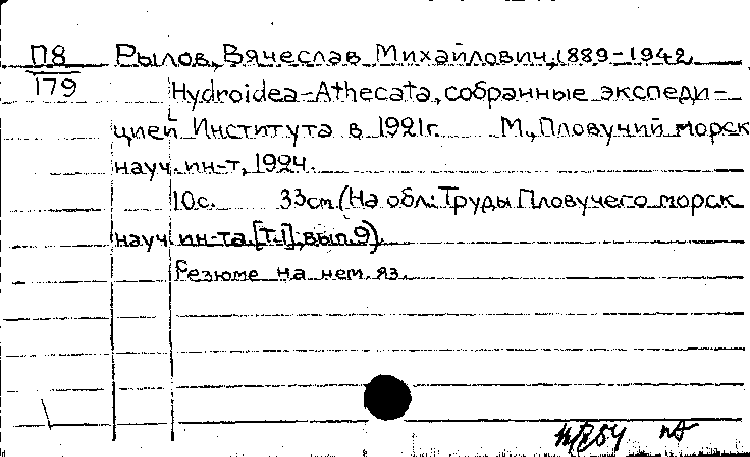 П8 Рылов, Вячеслав Михайлович, 1889-1942
179 Hydroidea-Athecata, собранные экспеди-
цией Института в 1921г. М., Пловучий морск
науч. ин-т, 1924.
10с. 33см. (На обл.: Труды Пловучего морск
науч. ин-та. [Т.1]; вып. 9).
Резюме на нем. яз.